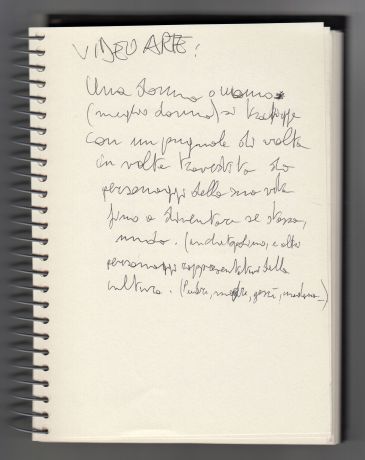 VIDEO ARTE:
Una donna o uomo
(meglio donna) si trafigge
con un pugnale di volta
in volta travestita da
personaggi della sua vita
fino a diventare se stessa,
nuda. (anche topolino, e altri
personaggi rappresentativi della
cultura. (Padre, madre, gesù, madonna...)